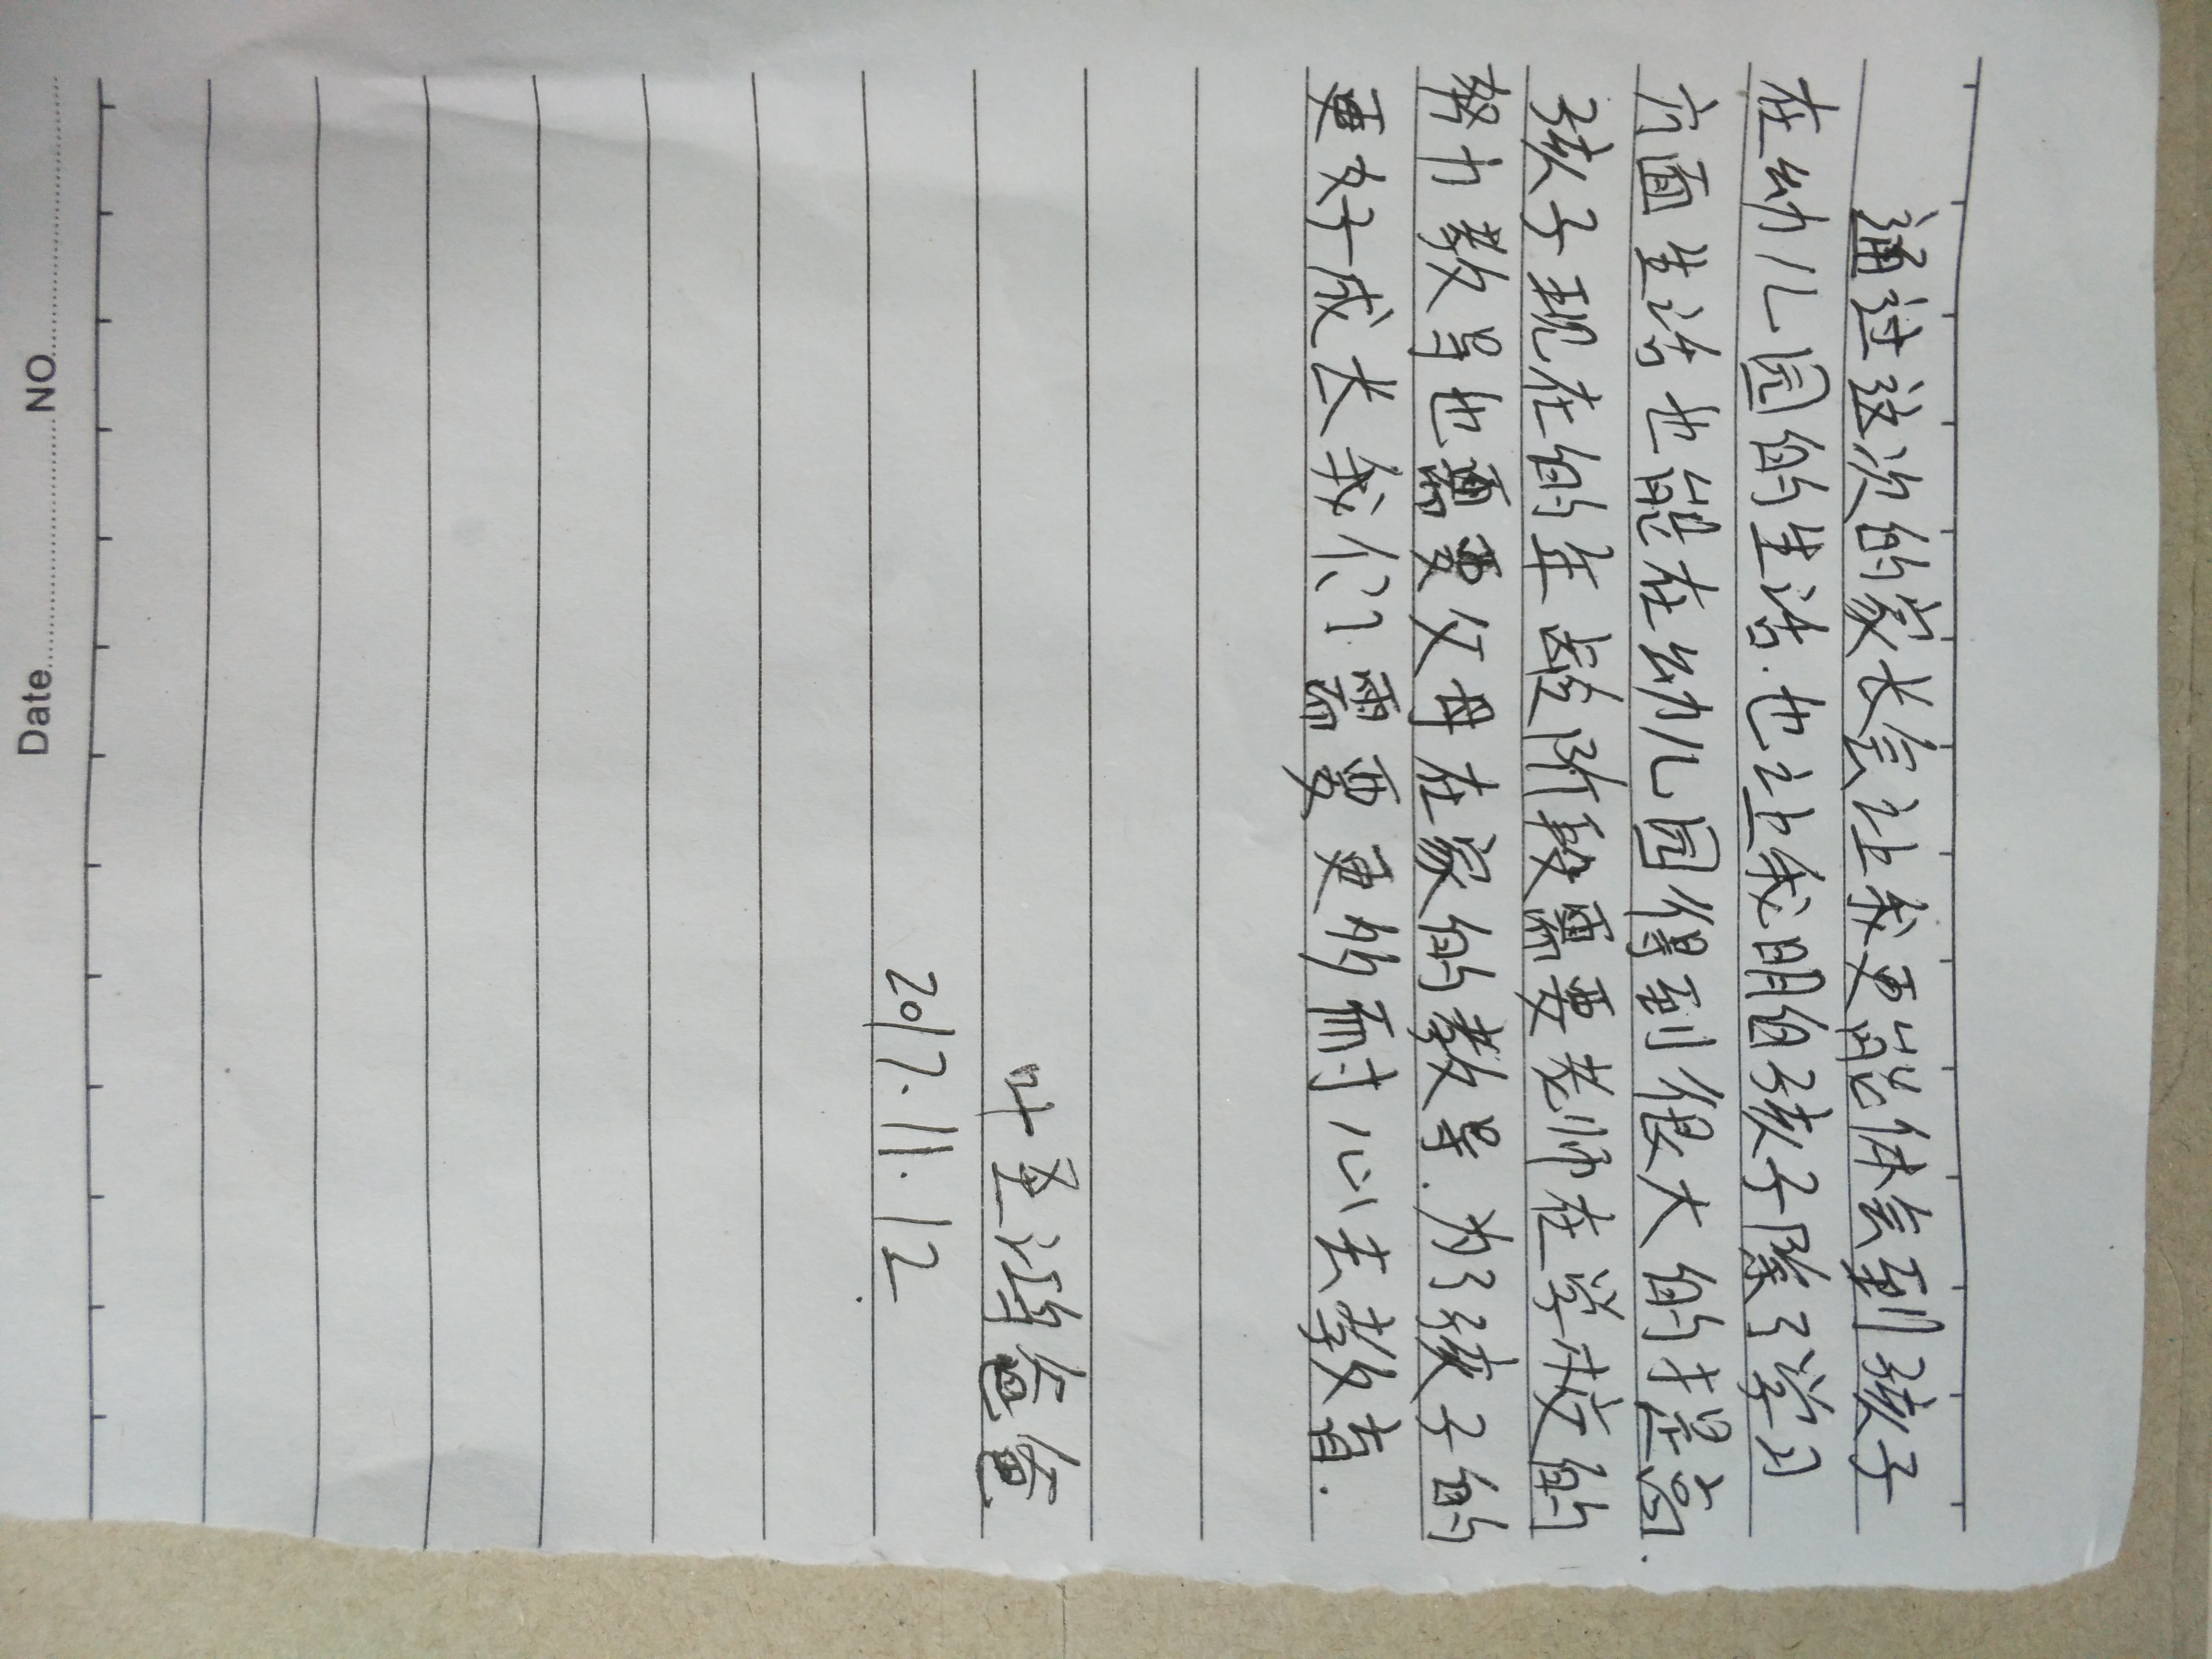 通过这次的家长会让我更能体会到孩子
在幼儿园的生活.也让我明白孩子除了学习
方面生活也能在幼儿园得到很大的提高.
孩子现在的年龄阶段需要老师在学校的
努力教导也需要父母在家的教导.为了孩子的
更好成长我们需要更的耐心去教育.
叶圣爸爸
2017.11.12
Date NO